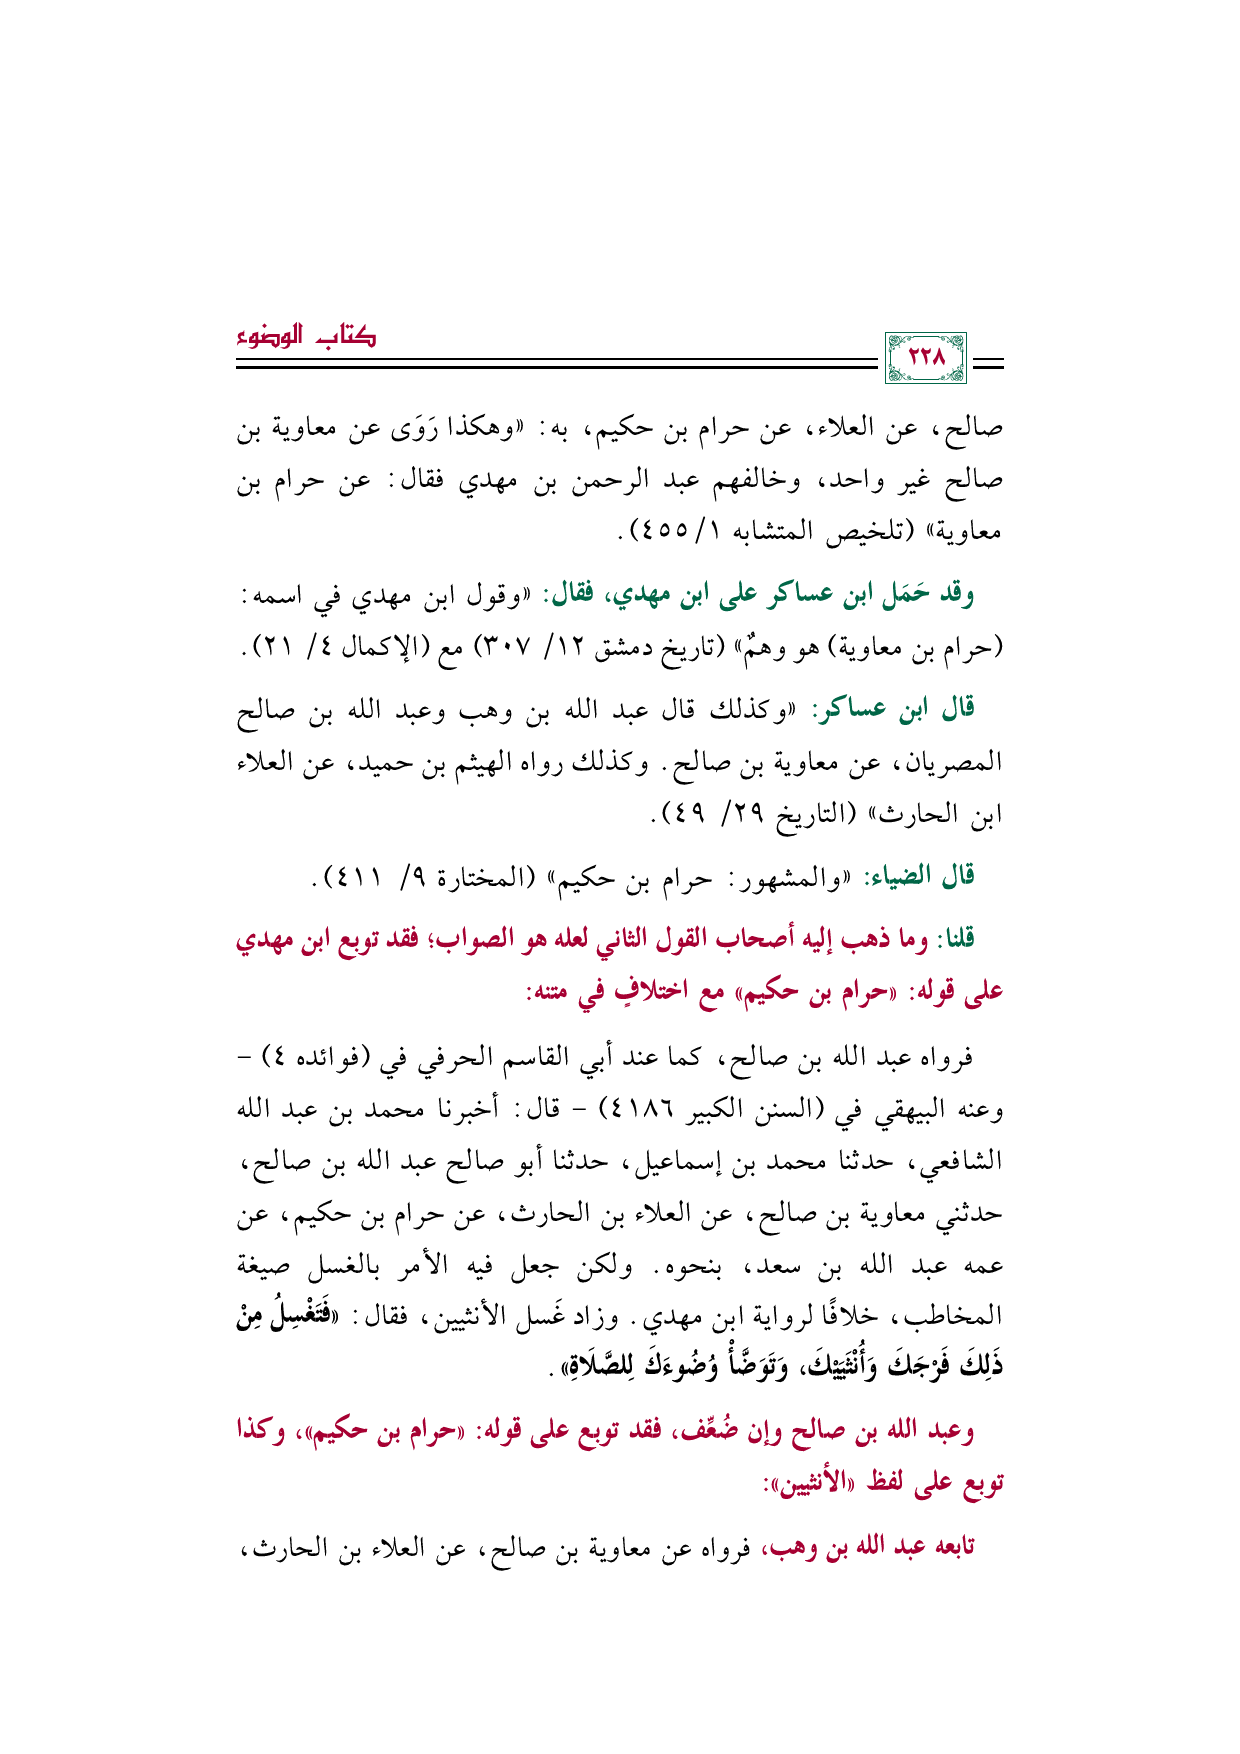 كتاب الوضوء
٢٢٨
صالح، عن العلاء، عن حرام بن حكيم، به: «وهكذا رَوَى عن معاوية بن
صالح غير واحد، وخالفهم عبد الرحمن بن مهدي فقال: عن حرام بن
معاوية» (تلخيص المتشابه ١/ ٤٥٥).
وقد حَمَل ابن عساكر على ابن مهدي، فقال: «وقول ابن مهدي في اسمه:
(حرام بن معاوية) هو وهمٌ» (تاريخ دمشق ١٢/ ٣٠٧) مع (الإكمال ٤/ ٢١).
قال ابن عساكر: «وكذلك قال عبد الله بن وهب وعبد الله بن صالح
المصريان، عن معاوية بن صالح. وكذلك رواه الهيثم بن حميد، عن العلاء
ابن الحارث» (التاريخ ٢٩/ ٤٩).
قال الضياء: «والمشهور: حرام بن حكيم» (المختارة ٩/ ٤١١).
قلنا: وما ذهب إليه أصحاب القول الثاني لعله هو الصواب؛ فقد توبع ابن مهدي
على قوله: «حرام بن حكيم» مع اختلافٍ في متنه:
فرواه عبد الله بن صالح، كما عند أبي القاسم الحرفي في (فوائده ٤) -
وعنه البيهقي في (السنن الكبير ٤١٨٦) - قال: أخبرنا محمد بن عبد الله
الشافعي، حدثنا محمد بن إسماعيل، حدثنا أبو صالح عبد الله بن صالح،
حدثني معاوية بن صالح، عن العلاء بن الحارث، عن حرام بن حكيم، عن
عمه عبد الله بن سعد، بنحوه. ولكن جعل فيه الأمر بالغسل صيغة
المخاطب، خلافًا لرواية ابن مهدي. وزاد غَسل الأنثيين، فقال: «فَتَغْسِلُ مِنْ
ذَلِكَ فَرْجَكَ وَأُنْثَيَيْكَ، وَتَوَضَّأْ وُضُوءَكَ لِلصَّلَاةِ».
وعبد الله بن صالح وإن ضُعِّف، فقد توبع على قوله: «حرام بن حكيم»، وكذا
توبع على لفظ «الأنثيين»:
تابعه عبد الله بن وهب، فرواه عن معاوية بن صالح، عن العلاء بن الحارث،